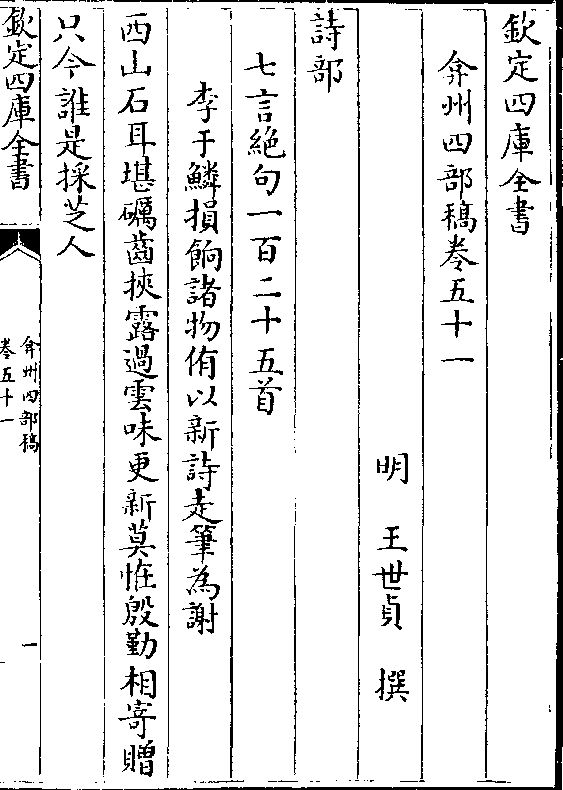 欽定四庫全書
弇州四部稿卷五十一
明 王世貞 撰
詩部
七言絶句一百二十五首
李于鱗損餉諸物侑以新詩走筆為謝
西山石耳堪礪齒挾露過雲味更新莫恠殷勤相寄贈
只今誰是採芝人
欽定四庫全書
弇州四部稿
卷五十一
一